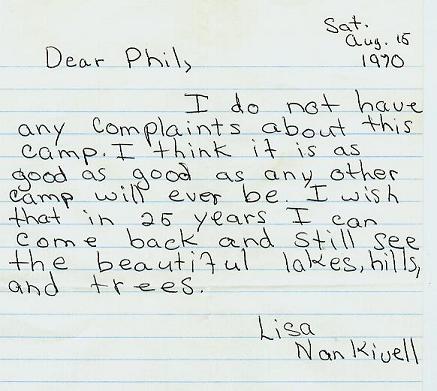 Sat.
Aug. 15
1970
Dear Phil,
I do not have
any complaints about this
camp. I think it is as
good as good as any other
camp will ever be. I wish
that in 25 years I can
come back and still see
the beautiful lakes, hills,
and trees.
Lisa
Nankivell